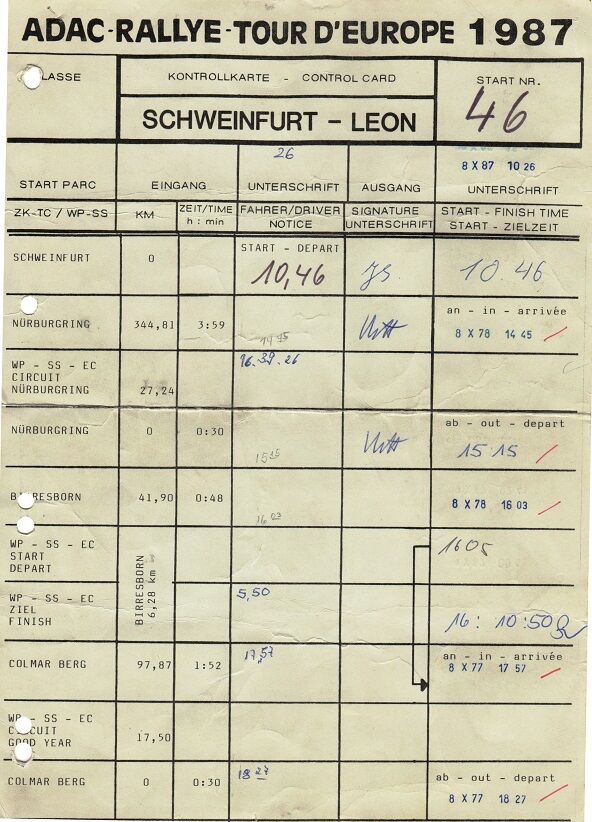 ADAC-RALLYE-TOUR D'EUROPE 1987
LASSE
KONTROLLKARTE - CONTROL CARD
START NR.
46
SCHWEINFURT - LEON
26
8 X 87 10 26
START PARC
EINGANG
UNTERSCHRIFT
AUSGANG
UNTERSCHRIFT
ZK-TC / WP-SS
KM
ZEIT/TIME
h : min
FAHRER/DRIVER
NOTICE
SIGNATURE
UNTERSCHRIFT
START - FINISH TIME
START - ZIELZEIT
SCHWEINFURT
0
START - DEPART
10,46
10.46
NÜRBURGRING
344,81
3:59
14 45
an - in - arrivée
8 X 78 14 45
WP - SS - EC
CIRCUIT
NÜRBURGRING
27,24
16.39.26
NÜRBURGRING
0
0:30
15 15
ab - out - depart
15 15
BIRRESBORN
41,90
0:48
16 03
8 X 78 16 03
WP - SS - EC
START
DEPART
BIRRESBORN
6,28 km
1605
WP - SS - EC
ZIEL
FINISH
5,50
16: 10:50
COLMAR BERG
97,87
1:52
17,57
an - in - arrivée
8 X 77 17 57
WP - SS - EC
CIRCUIT
GOOD YEAR
17,50
COLMAR BERG
0
0:30
18 27
ab - out - depart
8 X 77 18 27